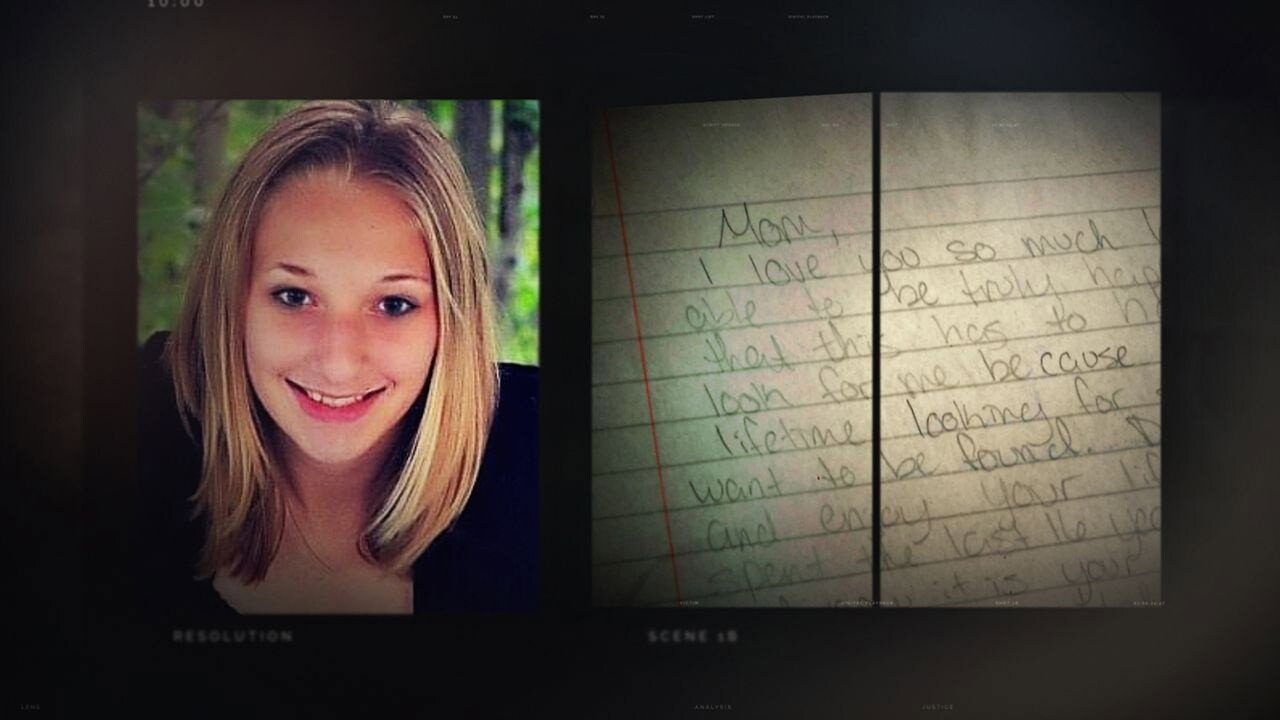 10:00
RESOLUTION
Mom,
I love you so much I
able to be truly hap
that this has to h
look for me because
lifetime looking for
want to be found. D
and enjoy your lif
spent the last 16 yea
it is your
SCENE 1B
VICTIM
DIGITAL PLAYBACK
LENS
ANALYSIS
JUSTICE